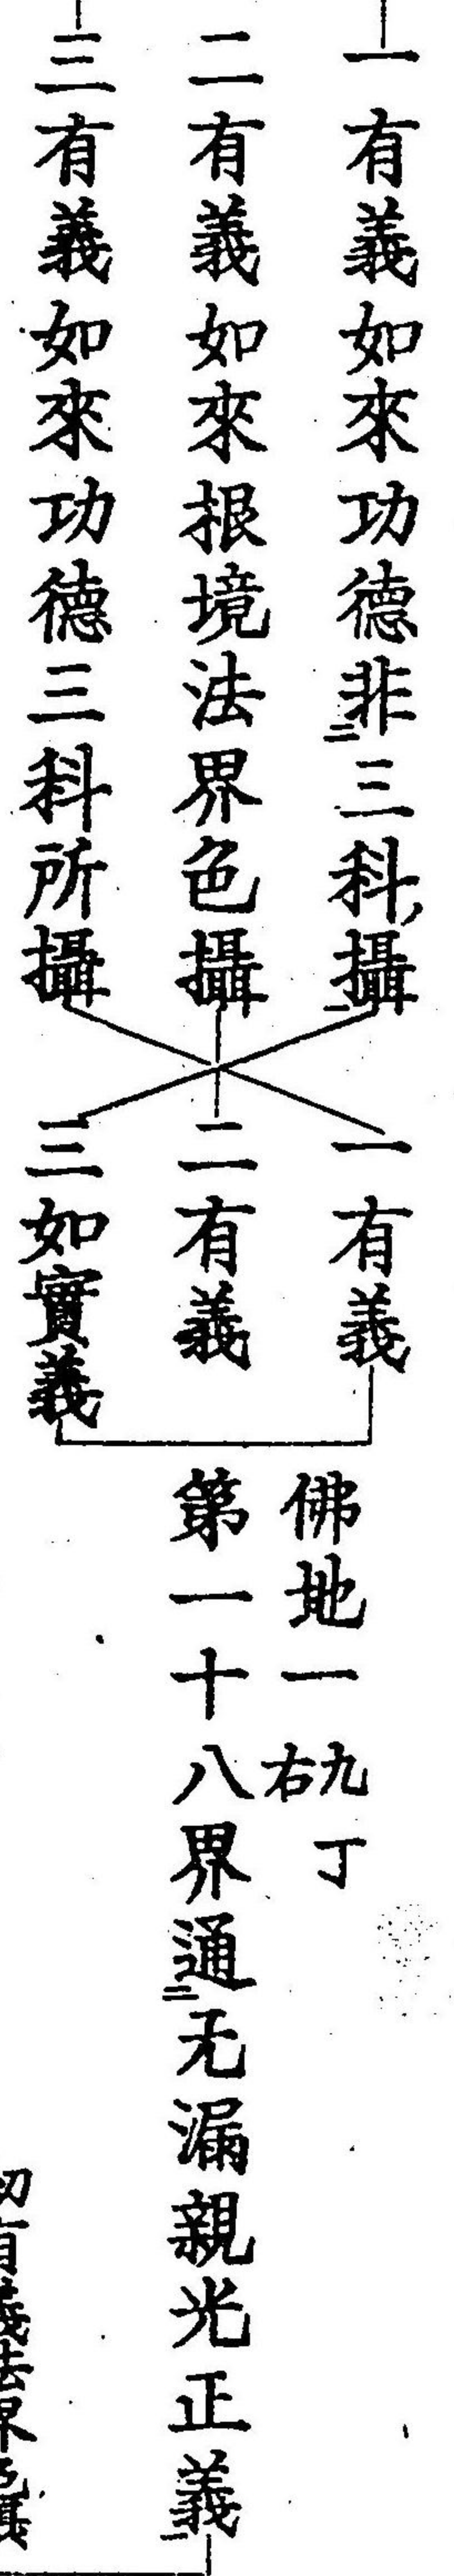 一有義如來功德非二三科攝一
二有義如來根境法界色攝
三有義如來功德三科所攝
一有義
二有義
三如實義
佛地一九丁右
第一十八界通二无漏親光正義一
初有義法界色攝